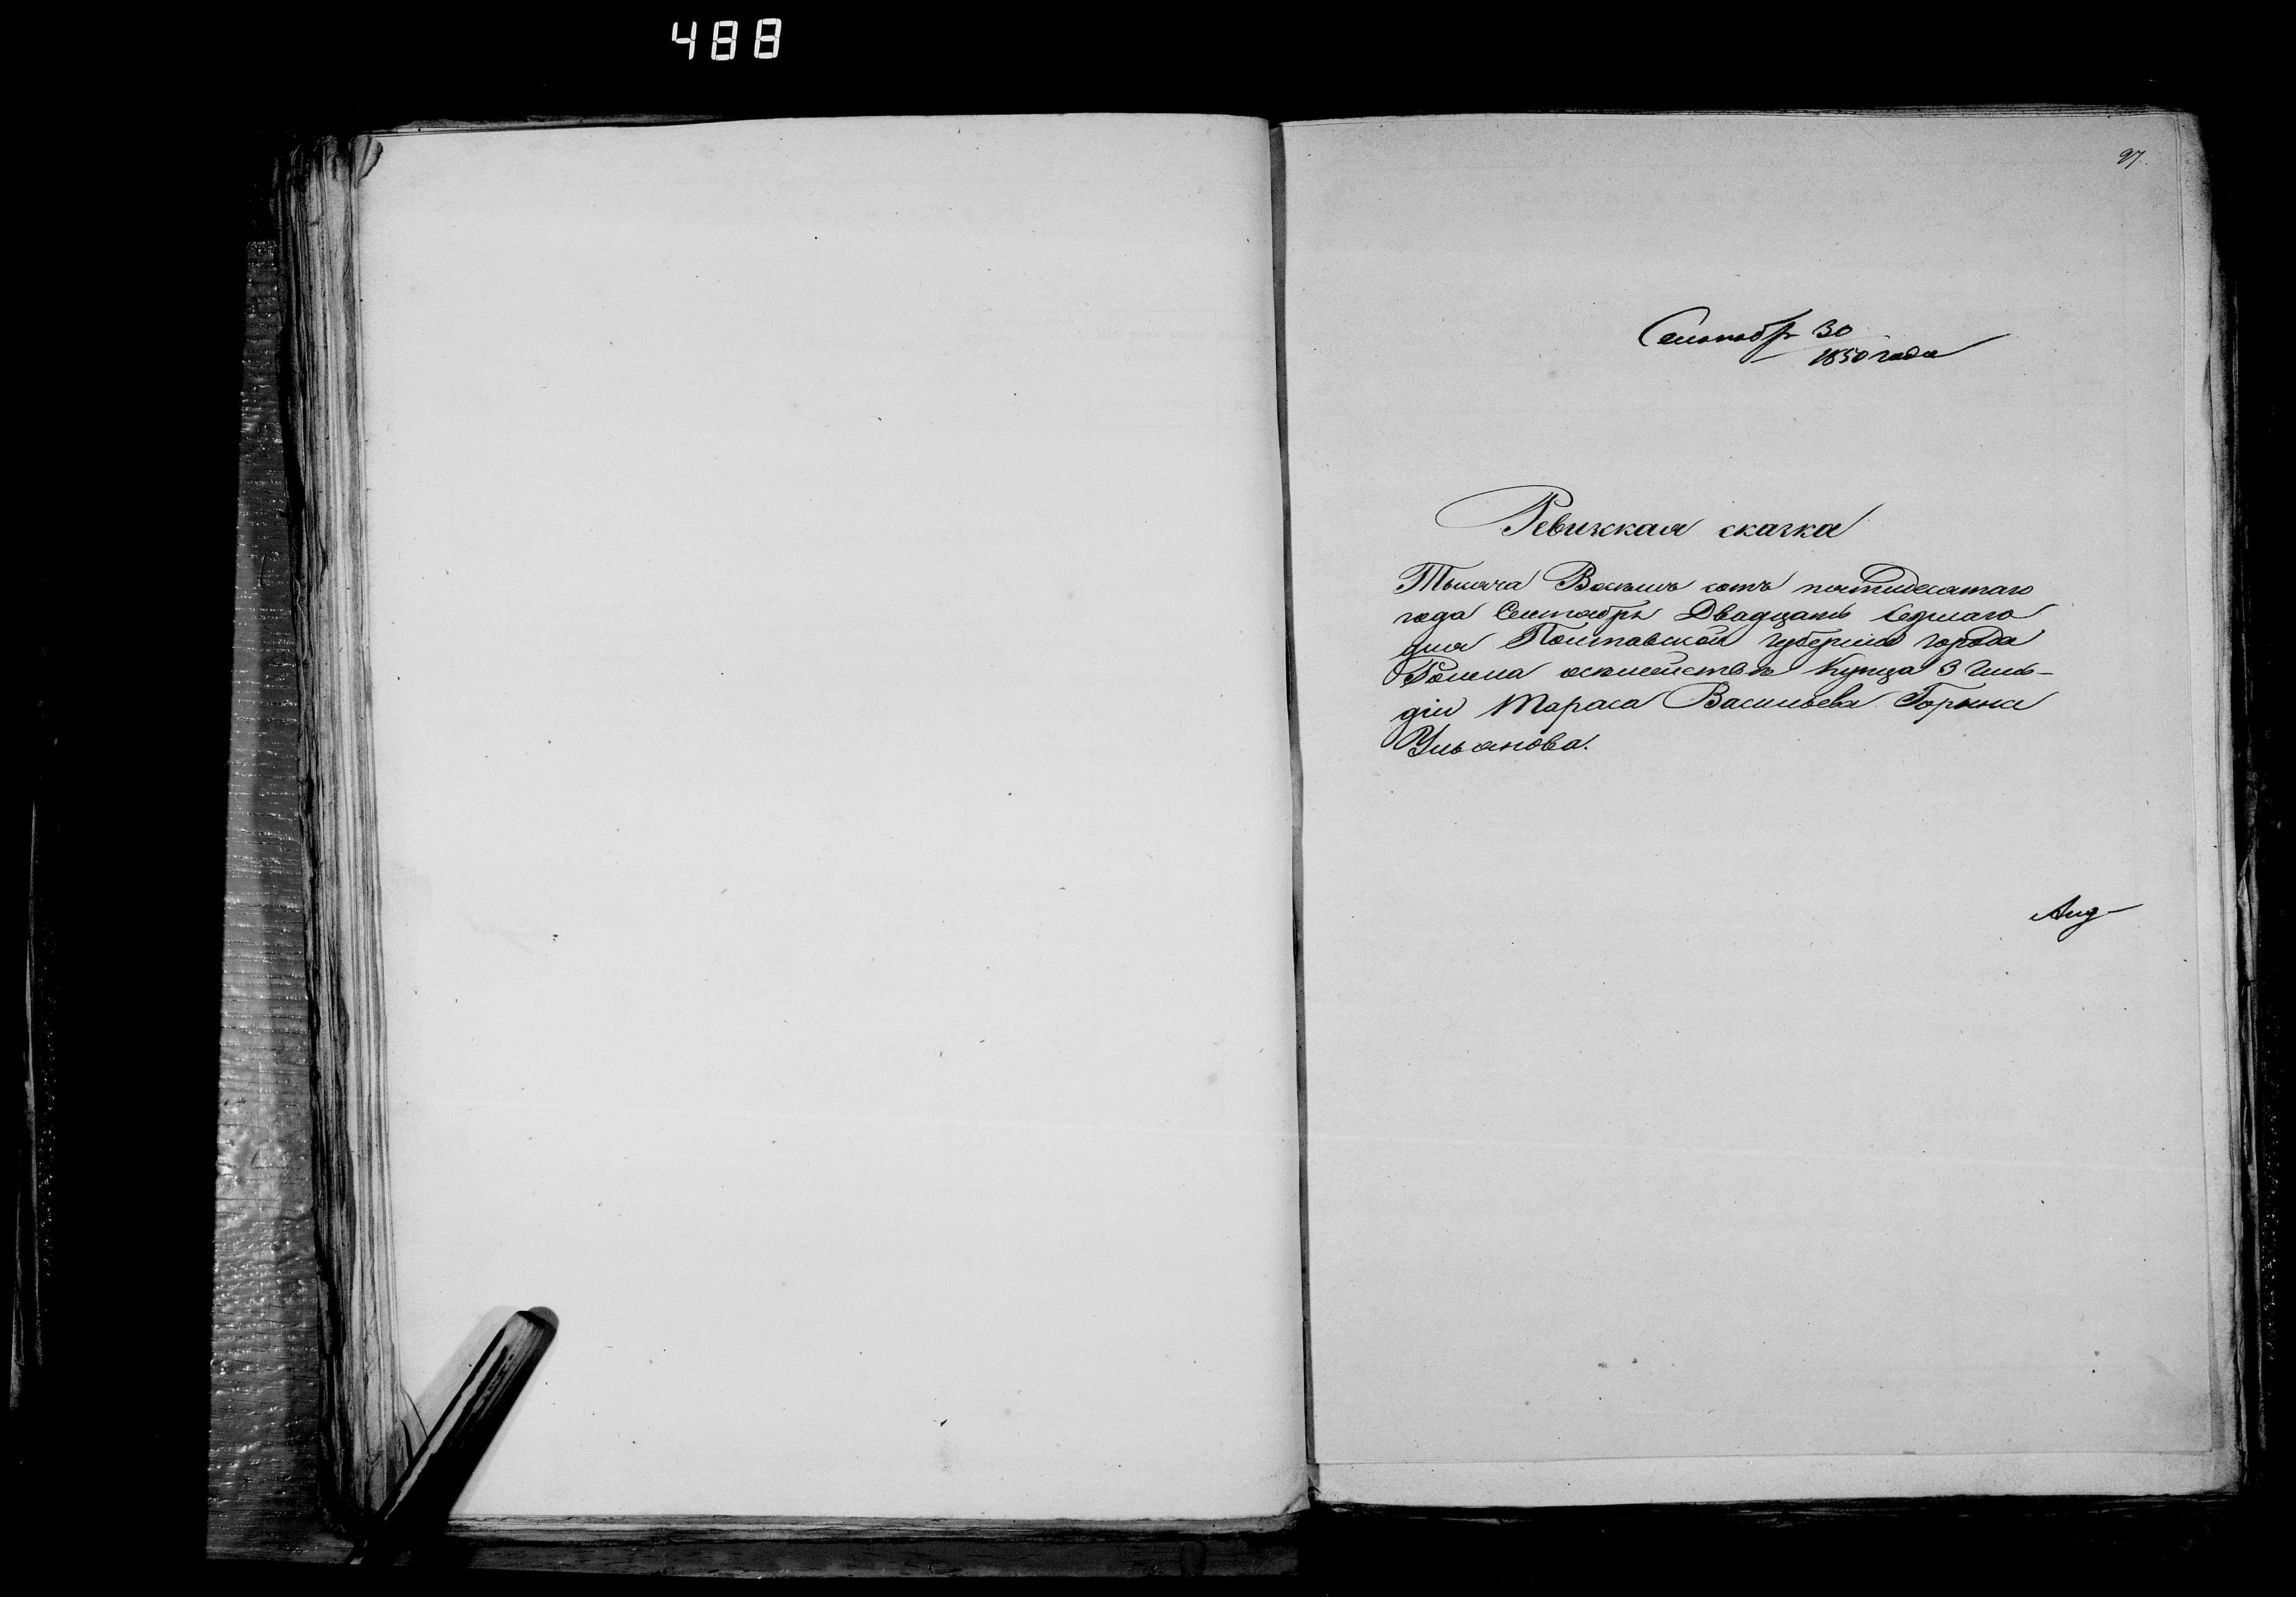 488
97.
Сентябр 30
1850 года
Ревизская сказка
Тысяча Восемь сотъ пятидесятаго
года Сентября Двадцать седмаго
дня Полтавской губерніи города
Ромна осемействѣ Купца 3 Гиль-
діи Тараса Васильева Горкна
Ульянова.